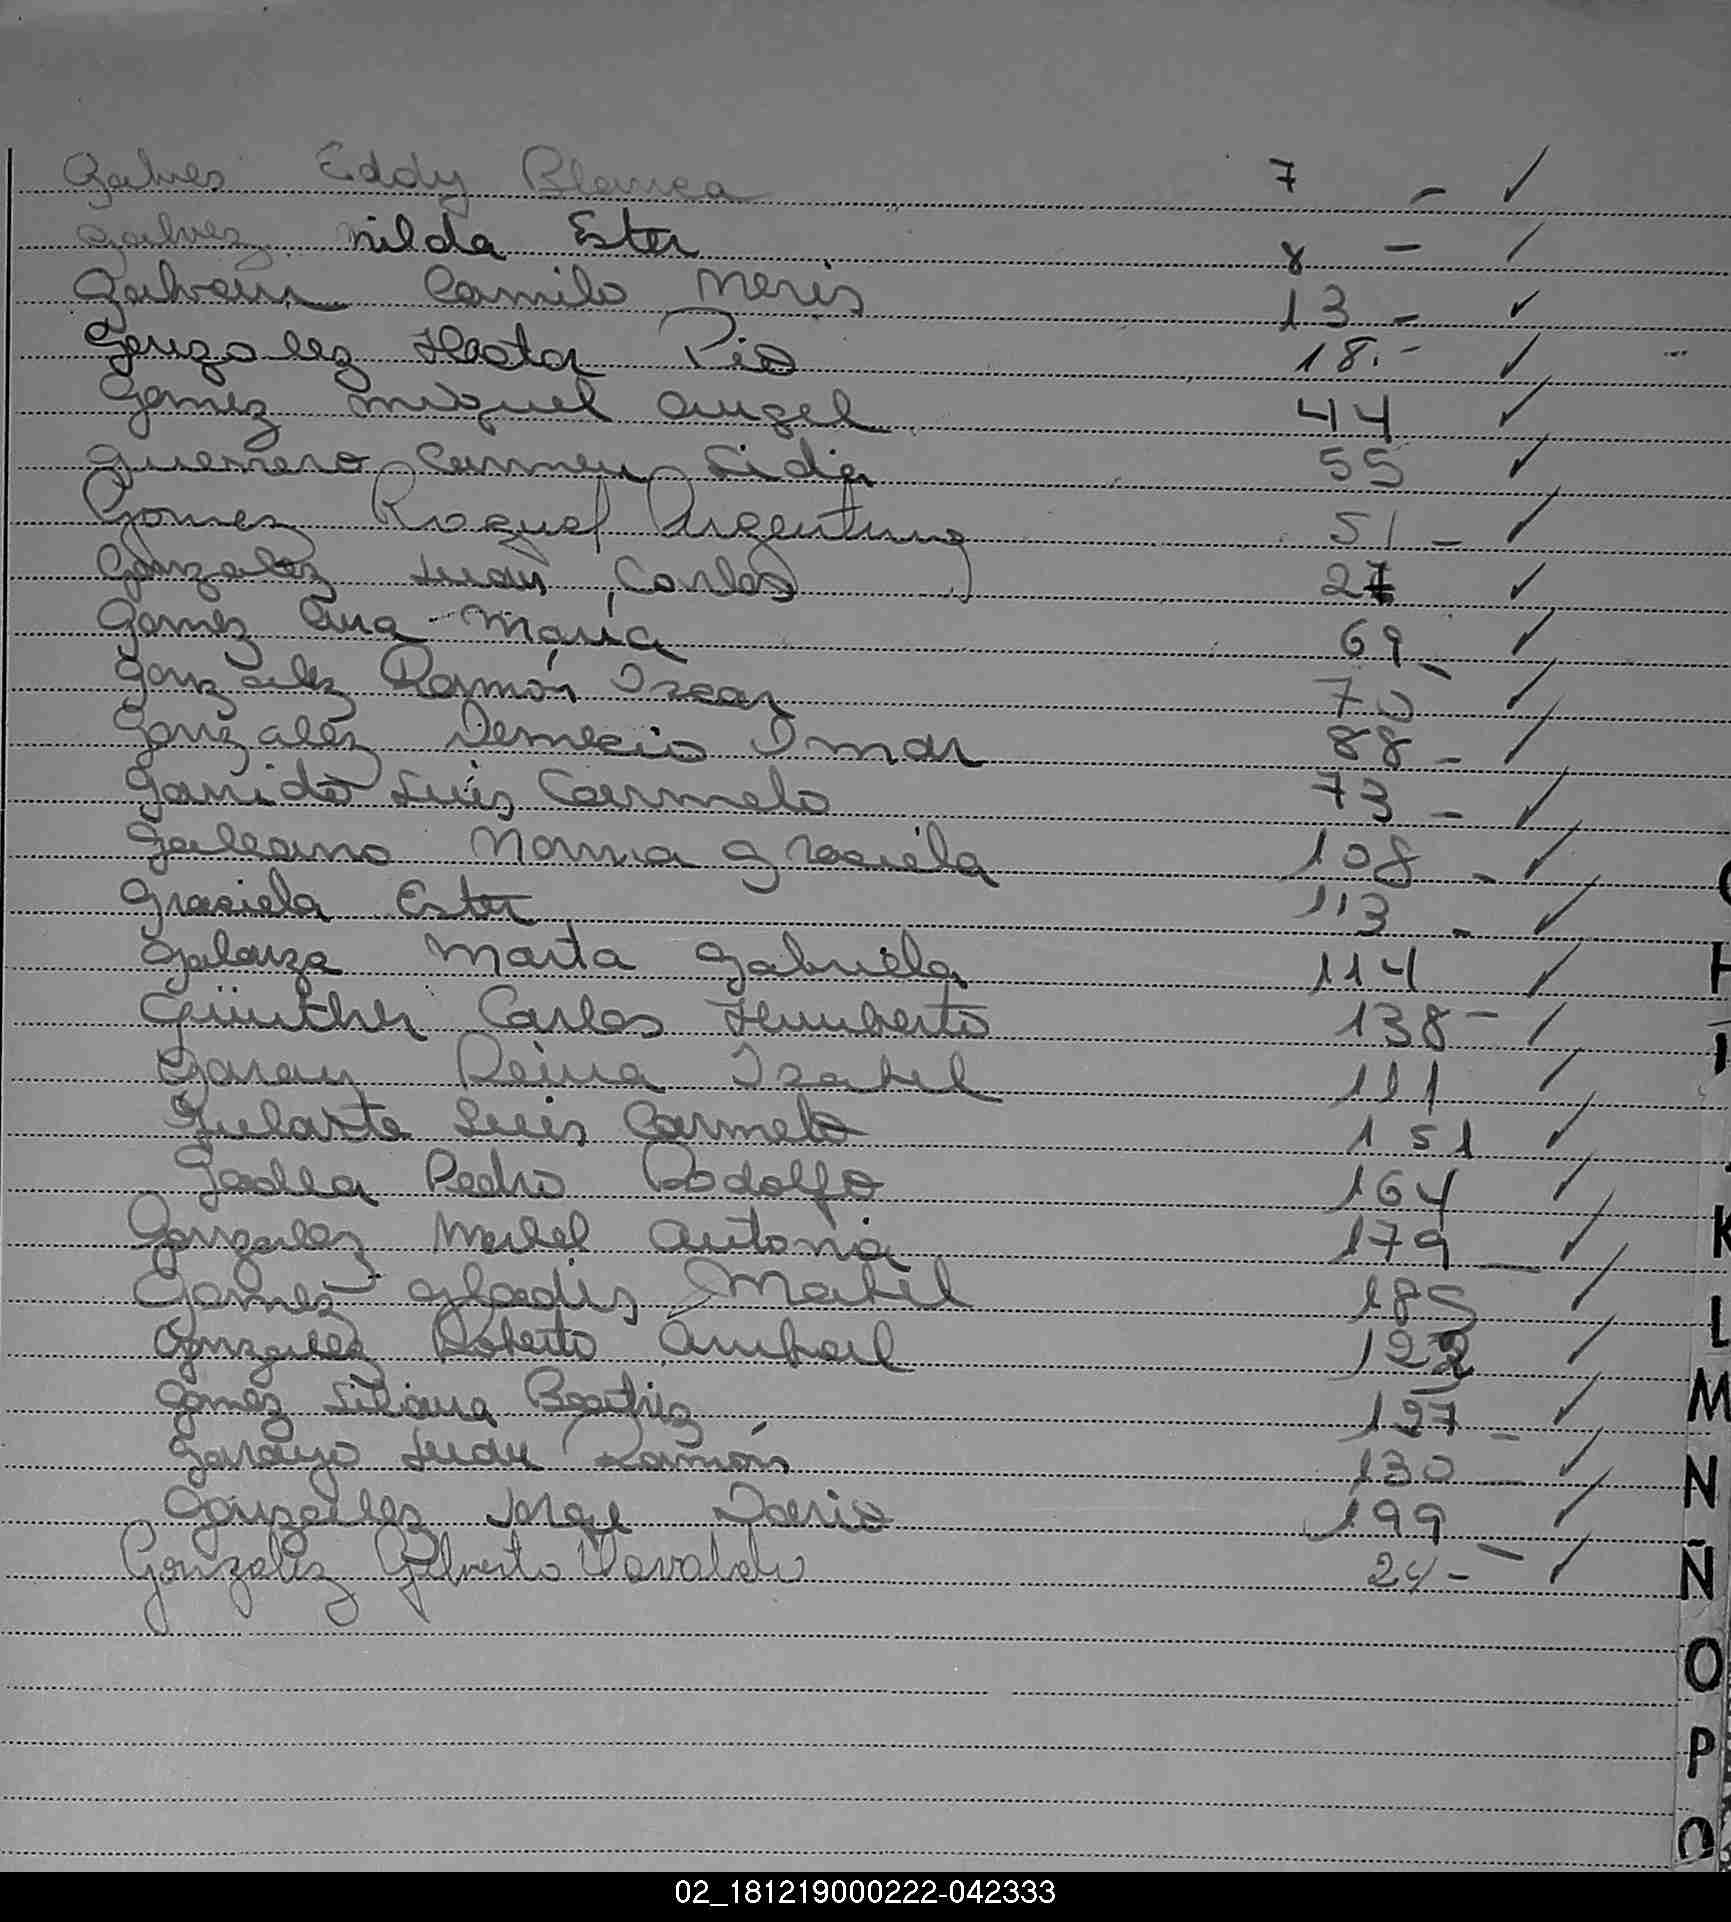 Galves Eddy Blanca 7 - ✓
Galvez nilda Ester 8 - ✓
Galvan Camilo Neris 13 - ✓
Gonzalez Hector Pio 18.- ✓
Gomez miguel angel 44 ✓
Guerrero Carmen Lidia 55 ✓
Gomez Raquel Argentina 51 - ✓
Gonzalez Juan Carlos 27 ✓
Gomez Ana María 69 - ✓
Gonzalez Ramón Iscar 70 ✓
Gonzalez Demecio Omar 88 - ✓
Garrido Luis Carmelo 73 - ✓
Galeano Norma Graciela 108 - ✓
Graciela Ester 113 - ✓
Galarza Marta Gabriela 114 ✓
Günther Carlos Humberto 138 - ✓
Garay Reina Isabel 111 ✓
Gularte Luis Carmelo 151 ✓
Pedro Rodolfo 164 ✓
Gonzalez Mabel Antonia 179 - ✓
Gomez Gladis Mabel 185 ✓
Gonzalez Roberto Anibal 122 ✓
Gomez Liliana Beatriz 127 - ✓
Garayo Juan Ramón 130 - ✓
Gonzalez Jorge Dario 199 ✓
Gonzalez Gilberto 24 - ✓
H
I
K
L
M
N
Ñ
O
P
02_181219000222-042333